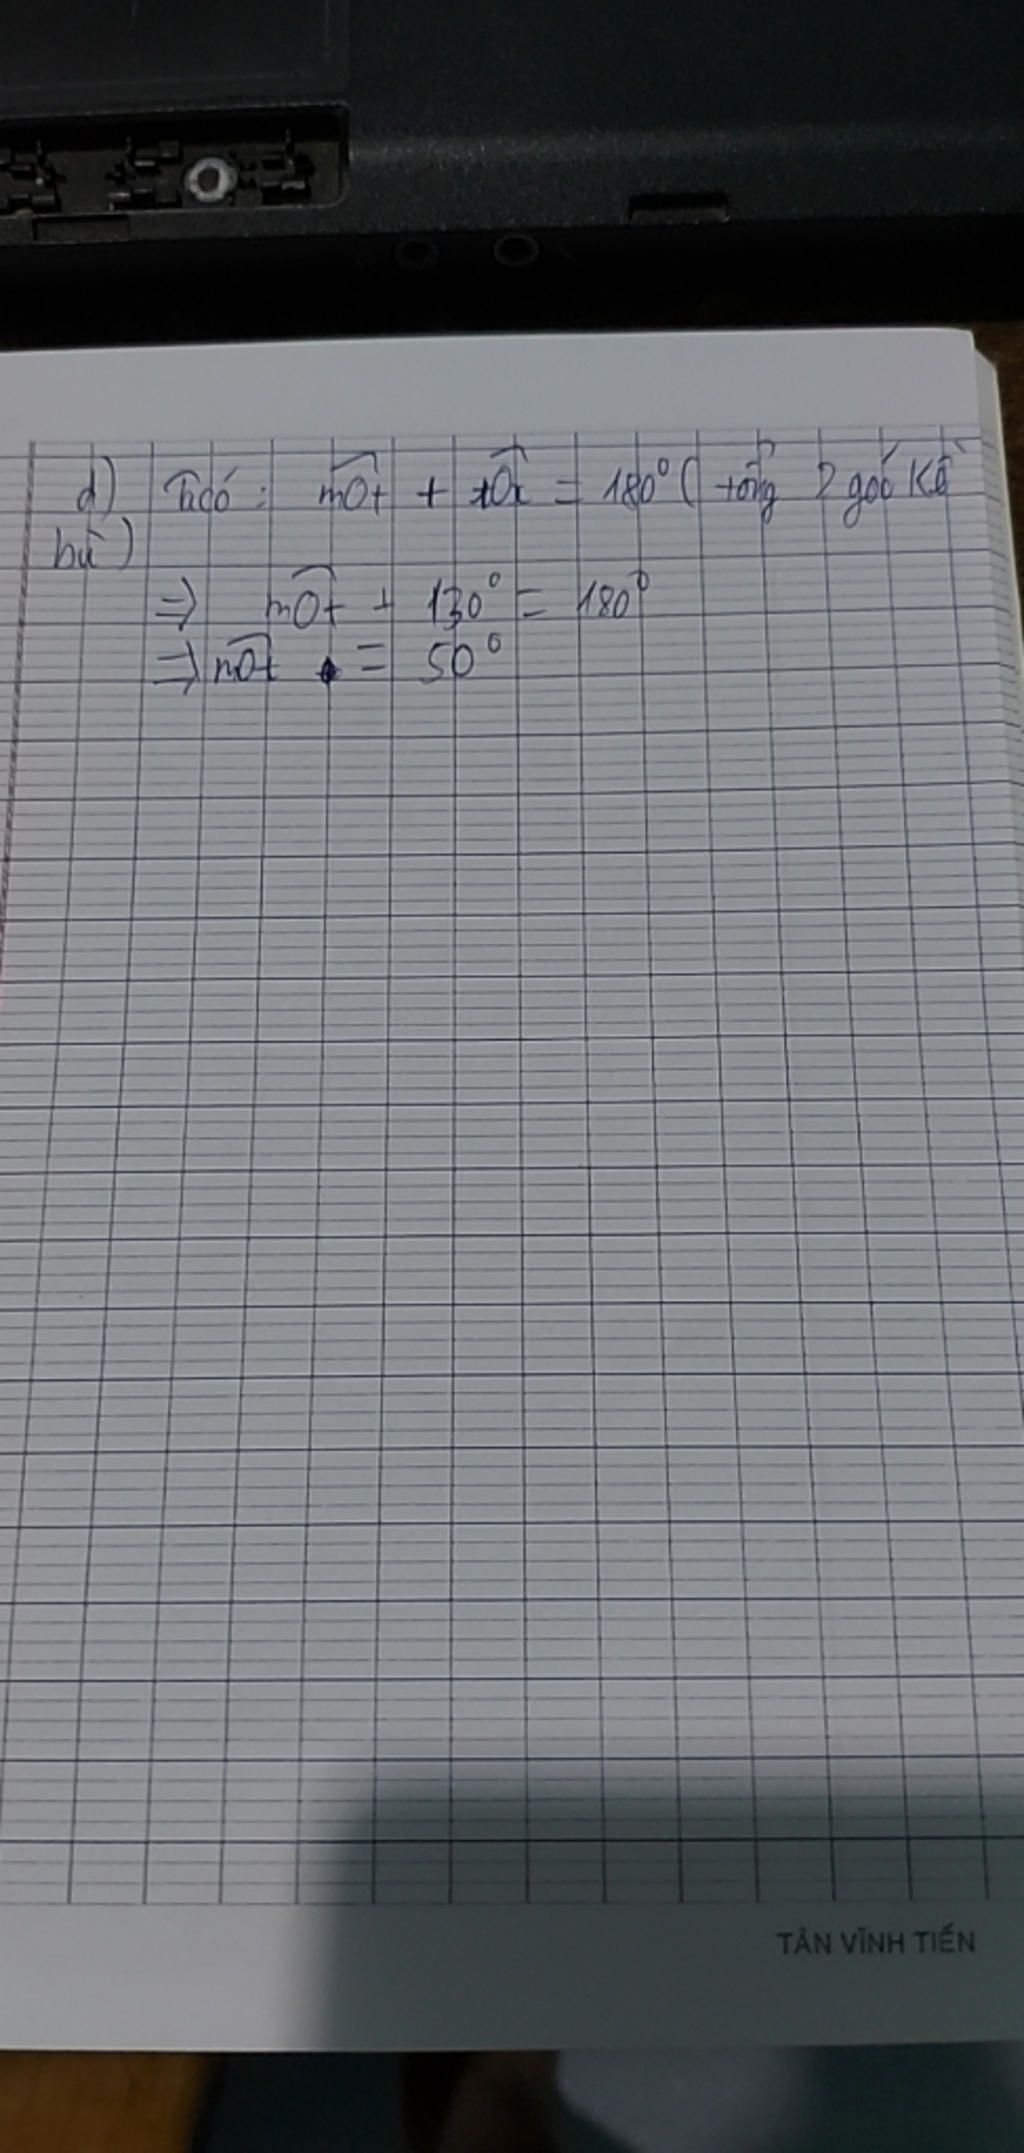 d) Ta có: mOt + tOx = 180° ( tổng 2 góc kề
bù )
⇒ mOt + 130° = 180°
⇒ mOt = 50°
TÂN VĨNH TIẾN